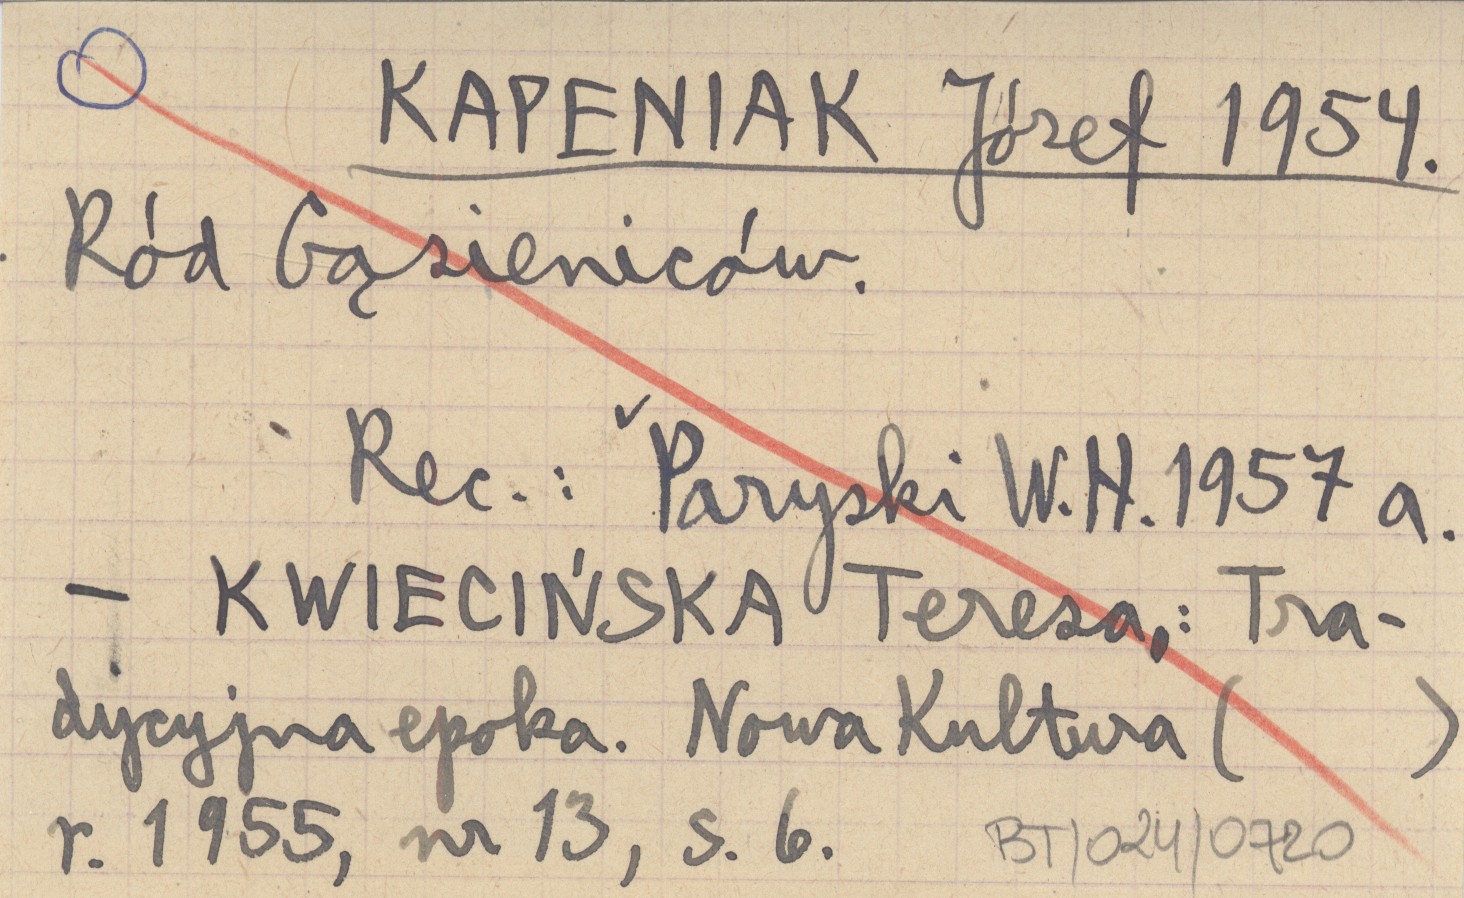 KAPENIAK Józef 1954.
Ród Gąsieniców.
Rec.: Paryski W.H. 1957 a.
– KWIECIŃSKA Teresa,: Tra-
dycyjna epoka. Nowa Kultura ( )
r. 1955, nr 13, s. 6.
BT/024/0720